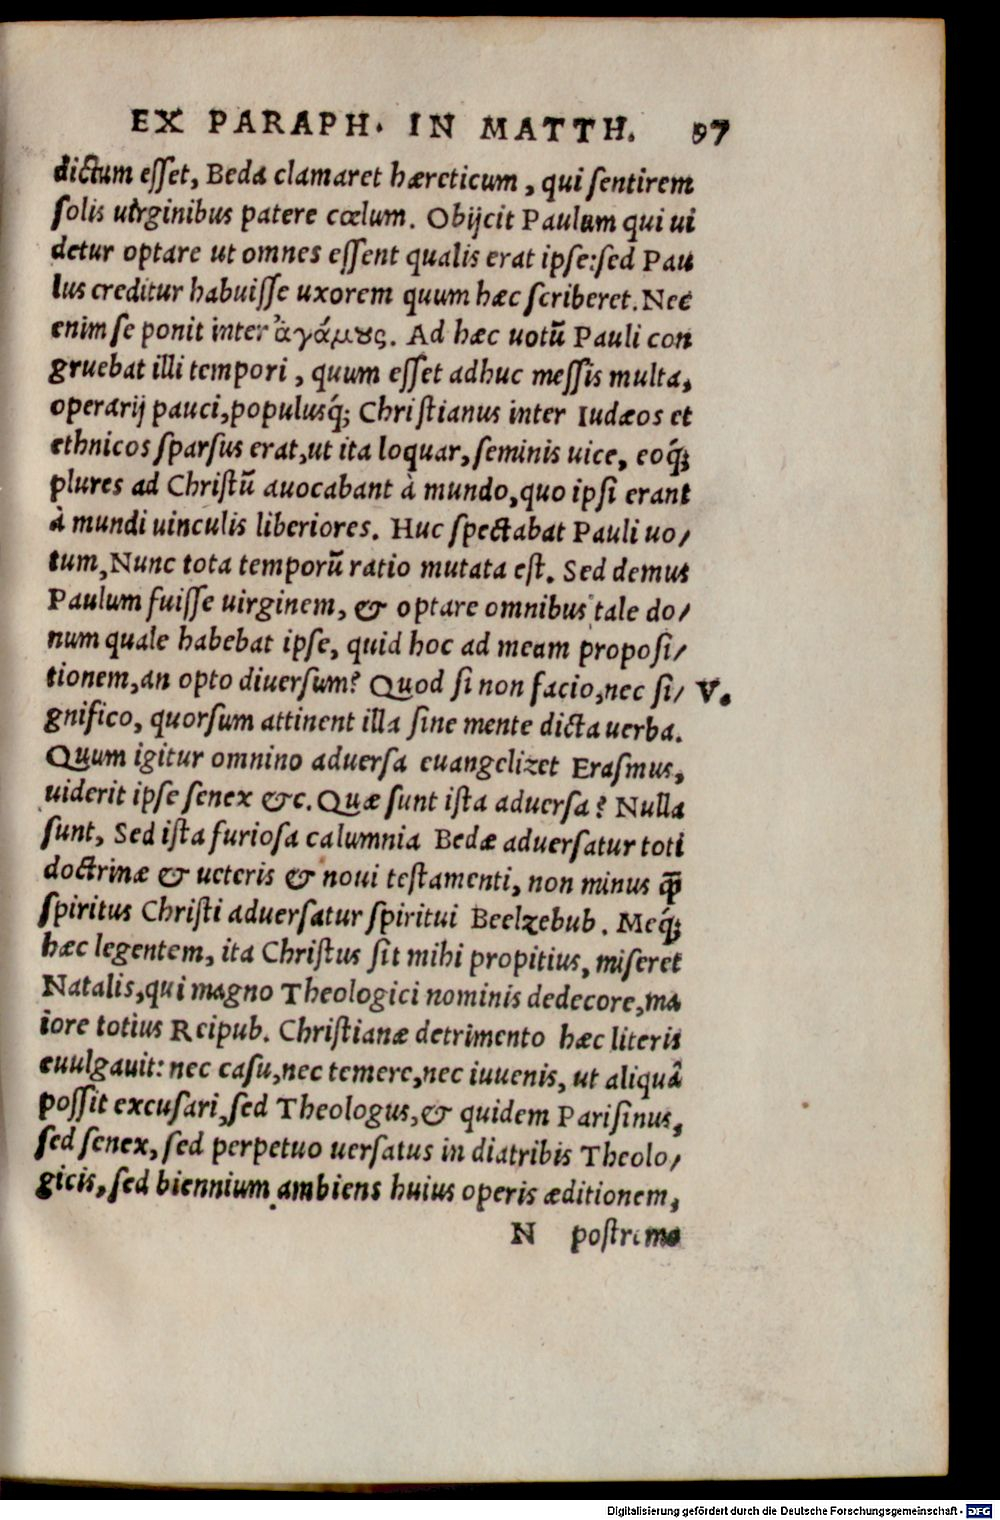 EX PARAPH. IN MATTH. 97
dictum esset, Beda clamaret hæreticum, qui sentirem
solis uirginibus patere cœlum. Obijcit Paulum qui ui
detur optare ut omnes essent qualis erat ipse: sed Pau
lus creditur habuisse uxorem quum hæc scriberet. Nec
enim se ponit inter ἀγάμȣς. Ad hæc uotũ Pauli con
gruebat illi tempori, quum esset adhuc messis multa,
operarij pauci, populusq́; Christianus inter Iudæos et
ethnicos sparsus erat, ut ita loquar, seminis uice, eoq́;
plures ad Christũ auocabant à mundo, quo ipsi erant
à mundi uinculis liberiores. Huc spectabat Pauli uo/
tum, Nunc tota temporũ ratio mutata est. Sed demus
Paulum fuisse uirginem, & optare omnibus tale do/
num quale habebat ipse, quid hoc ad meam proposi/
tionem, an opto diuersum? Quod si non facio, nec si/ V.
gnifico, quorsum attinent illa sine mente dicta uerba.
Quum igitur omnino aduersa euangelizet Erasmus,
uiderit ipse senex &c. Quæ sunt ista aduersa? Nulla
sunt, Sed ista furiosa calumnia Bedæ aduersatur toti
doctrinæ & ueteris & noui testamenti, non minus q̃
spiritus Christi aduersatur spiritui Beelzebub. Meq́;
hæc legentem, ita Christus sit mihi propitius, miseret
Natalis, qui magno Theologici nominis dedecore, ma
iore totius Reipub. Christianæ detrimento hæc literis
euulgauit: nec casu, nec temere, nec iuuenis, ut aliquâ
possit excusari, sed Theologus, & quidem Parisinus,
sed senex, sed perpetuo uersatus in diatribis Theolo/
gicis, sed biennium ambiens huius operis æditionem,
N postremo
Digitalisierung gefördert durch die Deutsche Forschungsgemeinschaft - DFG